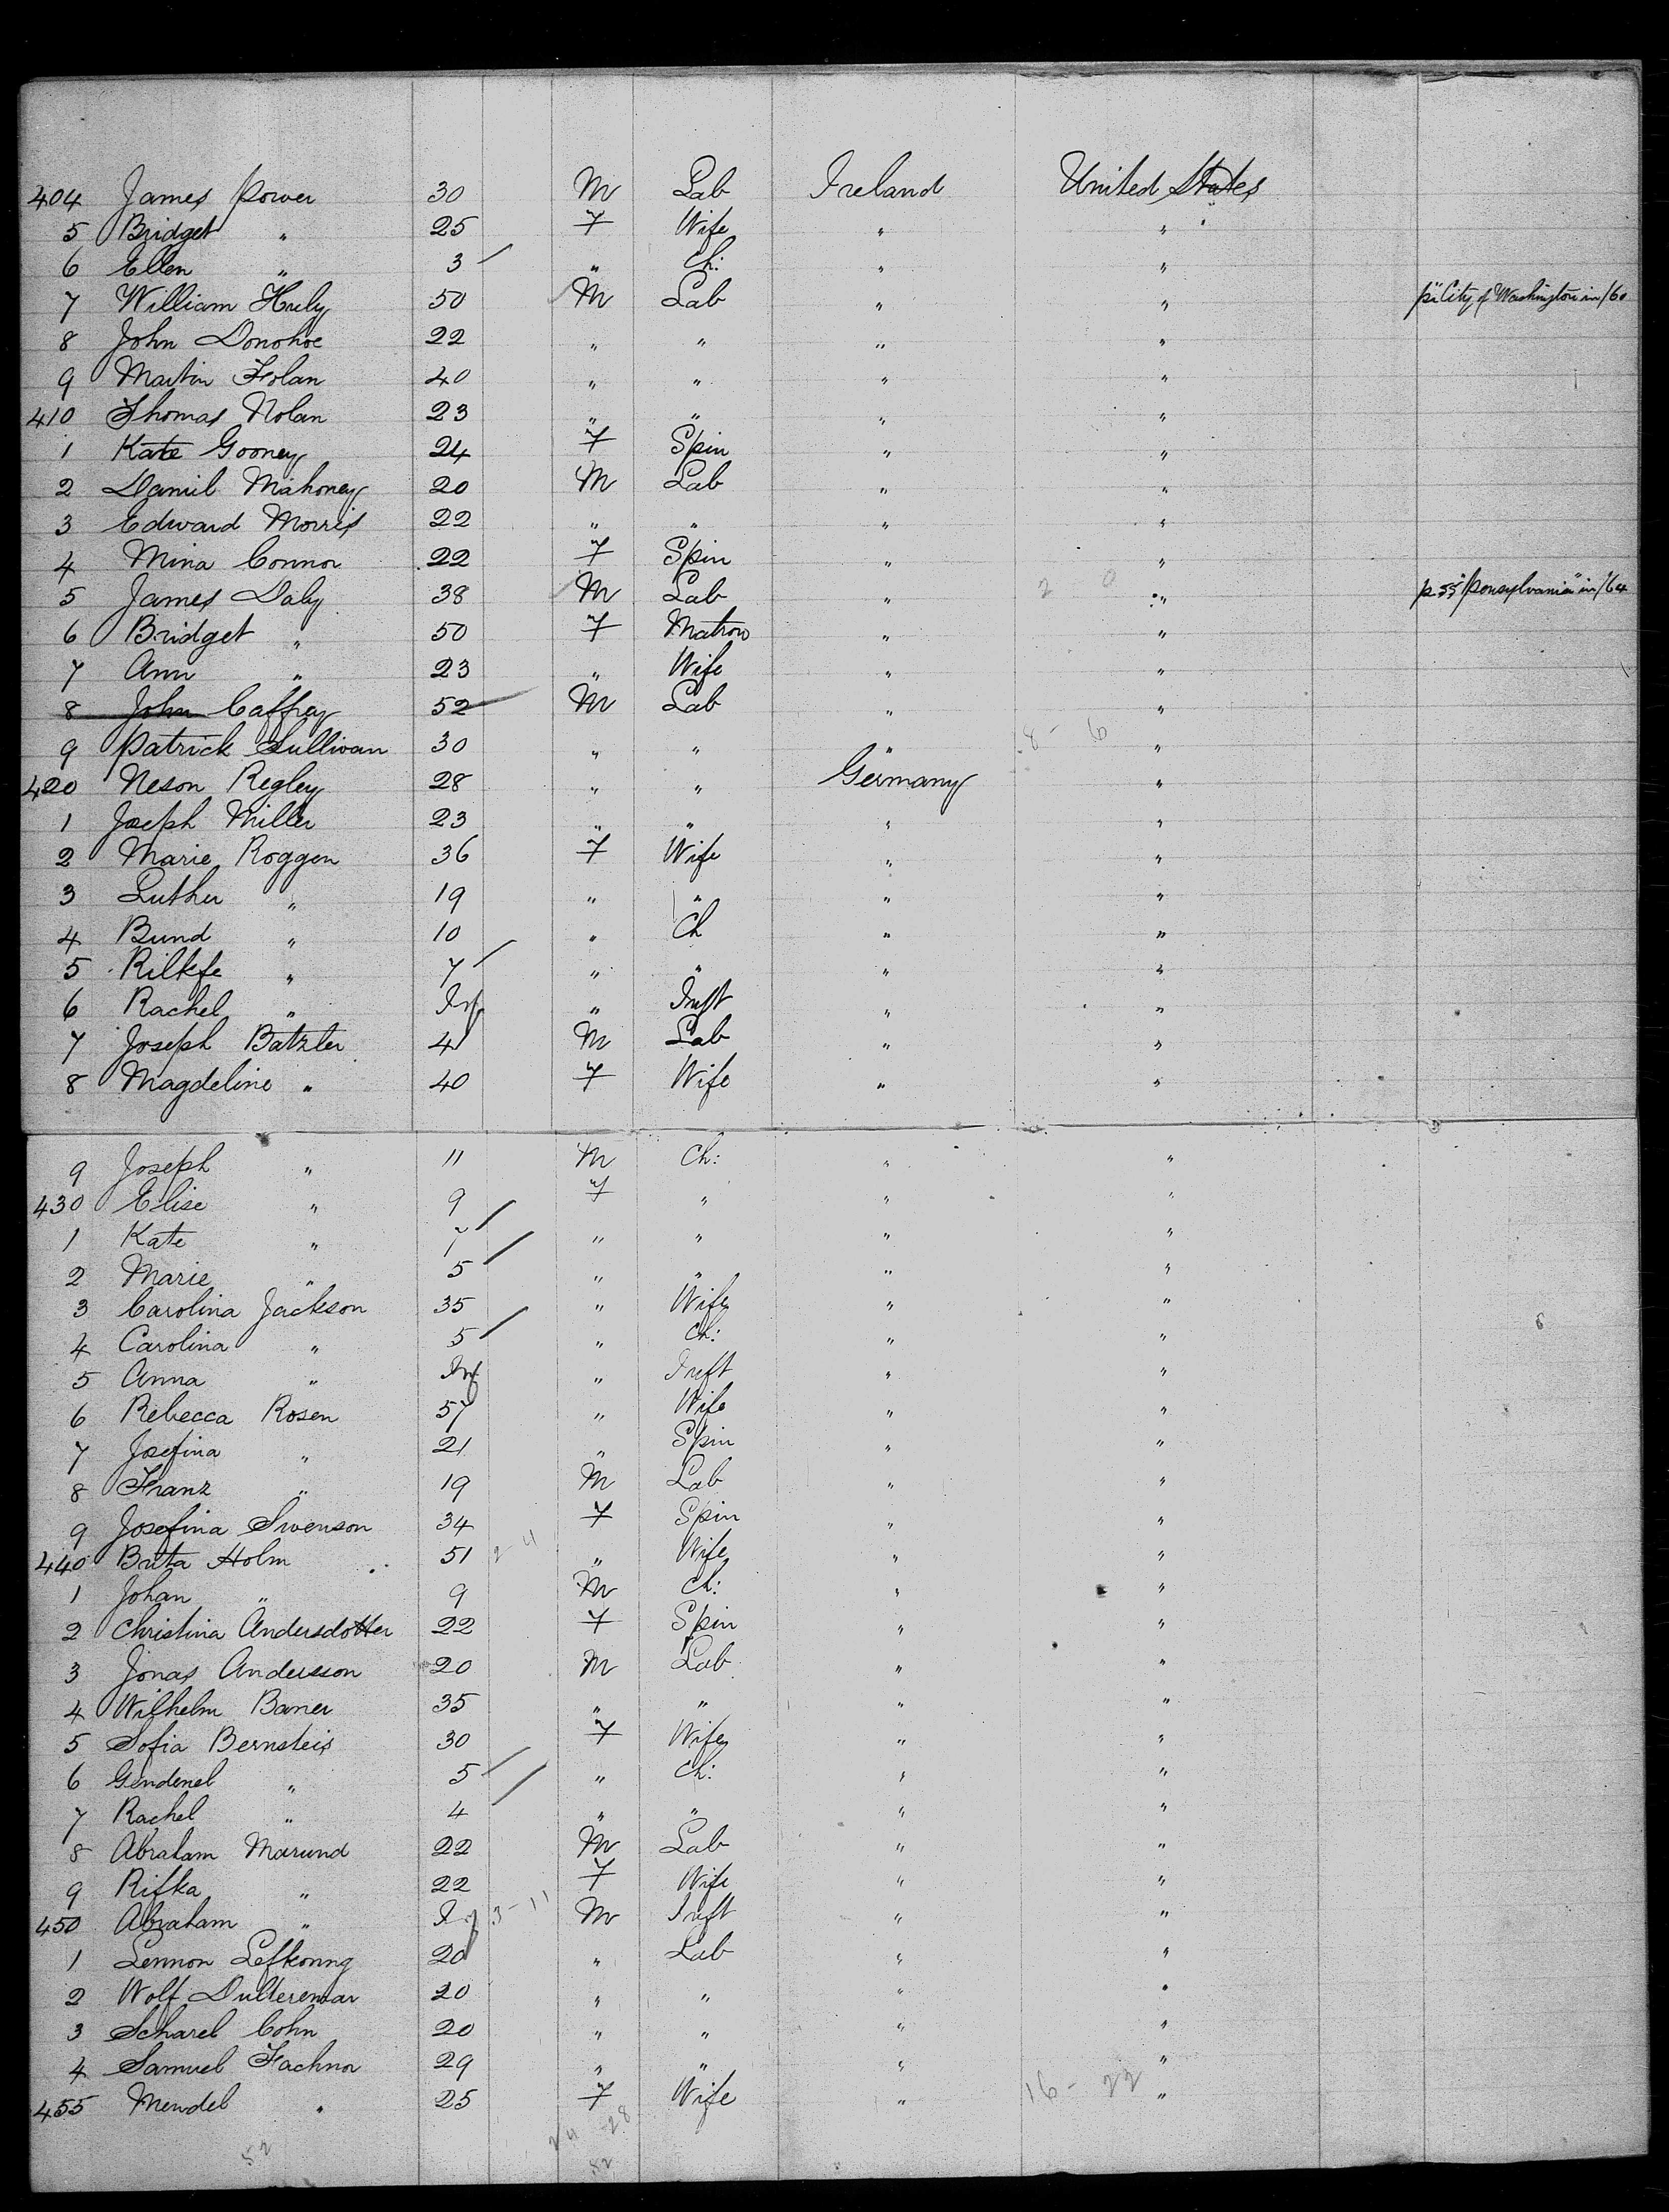 404 James Power 30 M Lab Ireland United States
5 Bridget " 25 F Wife " "
6 Ellen " 3 " Ch: " "
7 William Huly 50 M Lab " " pr "City of Washington in /60
8 John Donohoe 22 " " " "
9 Martin Folan 40 " " " "
410 Thomas Nolan 23 " " " "
1 Kate Gooney 24 F Spin " "
2 Daniel Mahoney 20 M Lab " "
3 Edward Morris 22 " " " "
4 Mina Connor 22 F Spin " "
5 James Daly 38 M Lab " 2 0 " p SS "Pensylvania" in /64
6 Bridget " 50 F Matron " "
7 Ann " 23 " Wife " "
8 John Caffrey 52 M Lab " "
9 Patrick Sullivan 30 " " " 8 - 6 "
420 Neson Regley 28 " " Germany "
1 Joseph Miller 23 " " " "
2 Marie Roggen 36 F Wife " "
3 Luther " 19 " " " "
4 Bund " 10 " Ch " "
5 Rilkfe " 7 " " " "
6 Rachel " Inf " Inft " "
7 Joseph Batzler 41 M Lab " "
8 Magdeline " 40 F Wife " "
9 Joseph " 11 M Ch: " "
430 Elise " 9 F " " "
1 Kate " 7 " " " "
2 Marie " 5 " " " "
3 Carolina Jackson 35 " Wife " "
4 Carolina " 5 " Ch: " "
5 Anna " Inf " Inft " "
6 Rebecca Rosen 57 " Wife " "
7 Josefina " 21 " Spin " "
8 Franz " 19 M Lab " "
9 Josefina Swenson 34 F Spin " "
440 Brita Holm 51 2 4 " Wife " "
1 Johan " 9 M Ch: " "
2 Christina Andersdotter 22 F Spin " "
3 Jonas Andersson 20 M Lab " "
4 Wilhelm Baner 35 " " " "
5 Sofia Bernsteis 30 F Wife " "
6 Gindenel " 5 " Ch: " "
7 Rachel " 4 " " " "
8 Abraham Marund 22 M Lab " "
9 Rifka " 22 F Wife " "
450 Abraham " Inf 3-11 M Inft " "
1 Lennon Lefkonng 20 " Lab " "
2 Wolf 20 " " " "
3 Scharel Cohn 20 " " " "
4 Samuel Fachnor 29 " " " "
455 Mendel " 25 F Wife " 16 - 22 "
52 24 -28
52